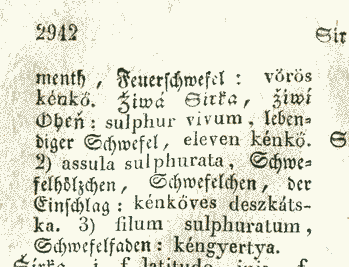 2942
Sir
menth, Feuerschwefel: vörös
kénkő. Žiwá Sirka, žiwí
Oheň: sulphur vivum, leben=
diger Schwefel, eleven kénkő.
2) assula sulphurata, Schwe=
felhölzchen, Schwefelchen, der
Einschlag: kénköves deszkáts-
ka. 3) filum sulphuratum,
Schwefelfaden: kéngyertya.